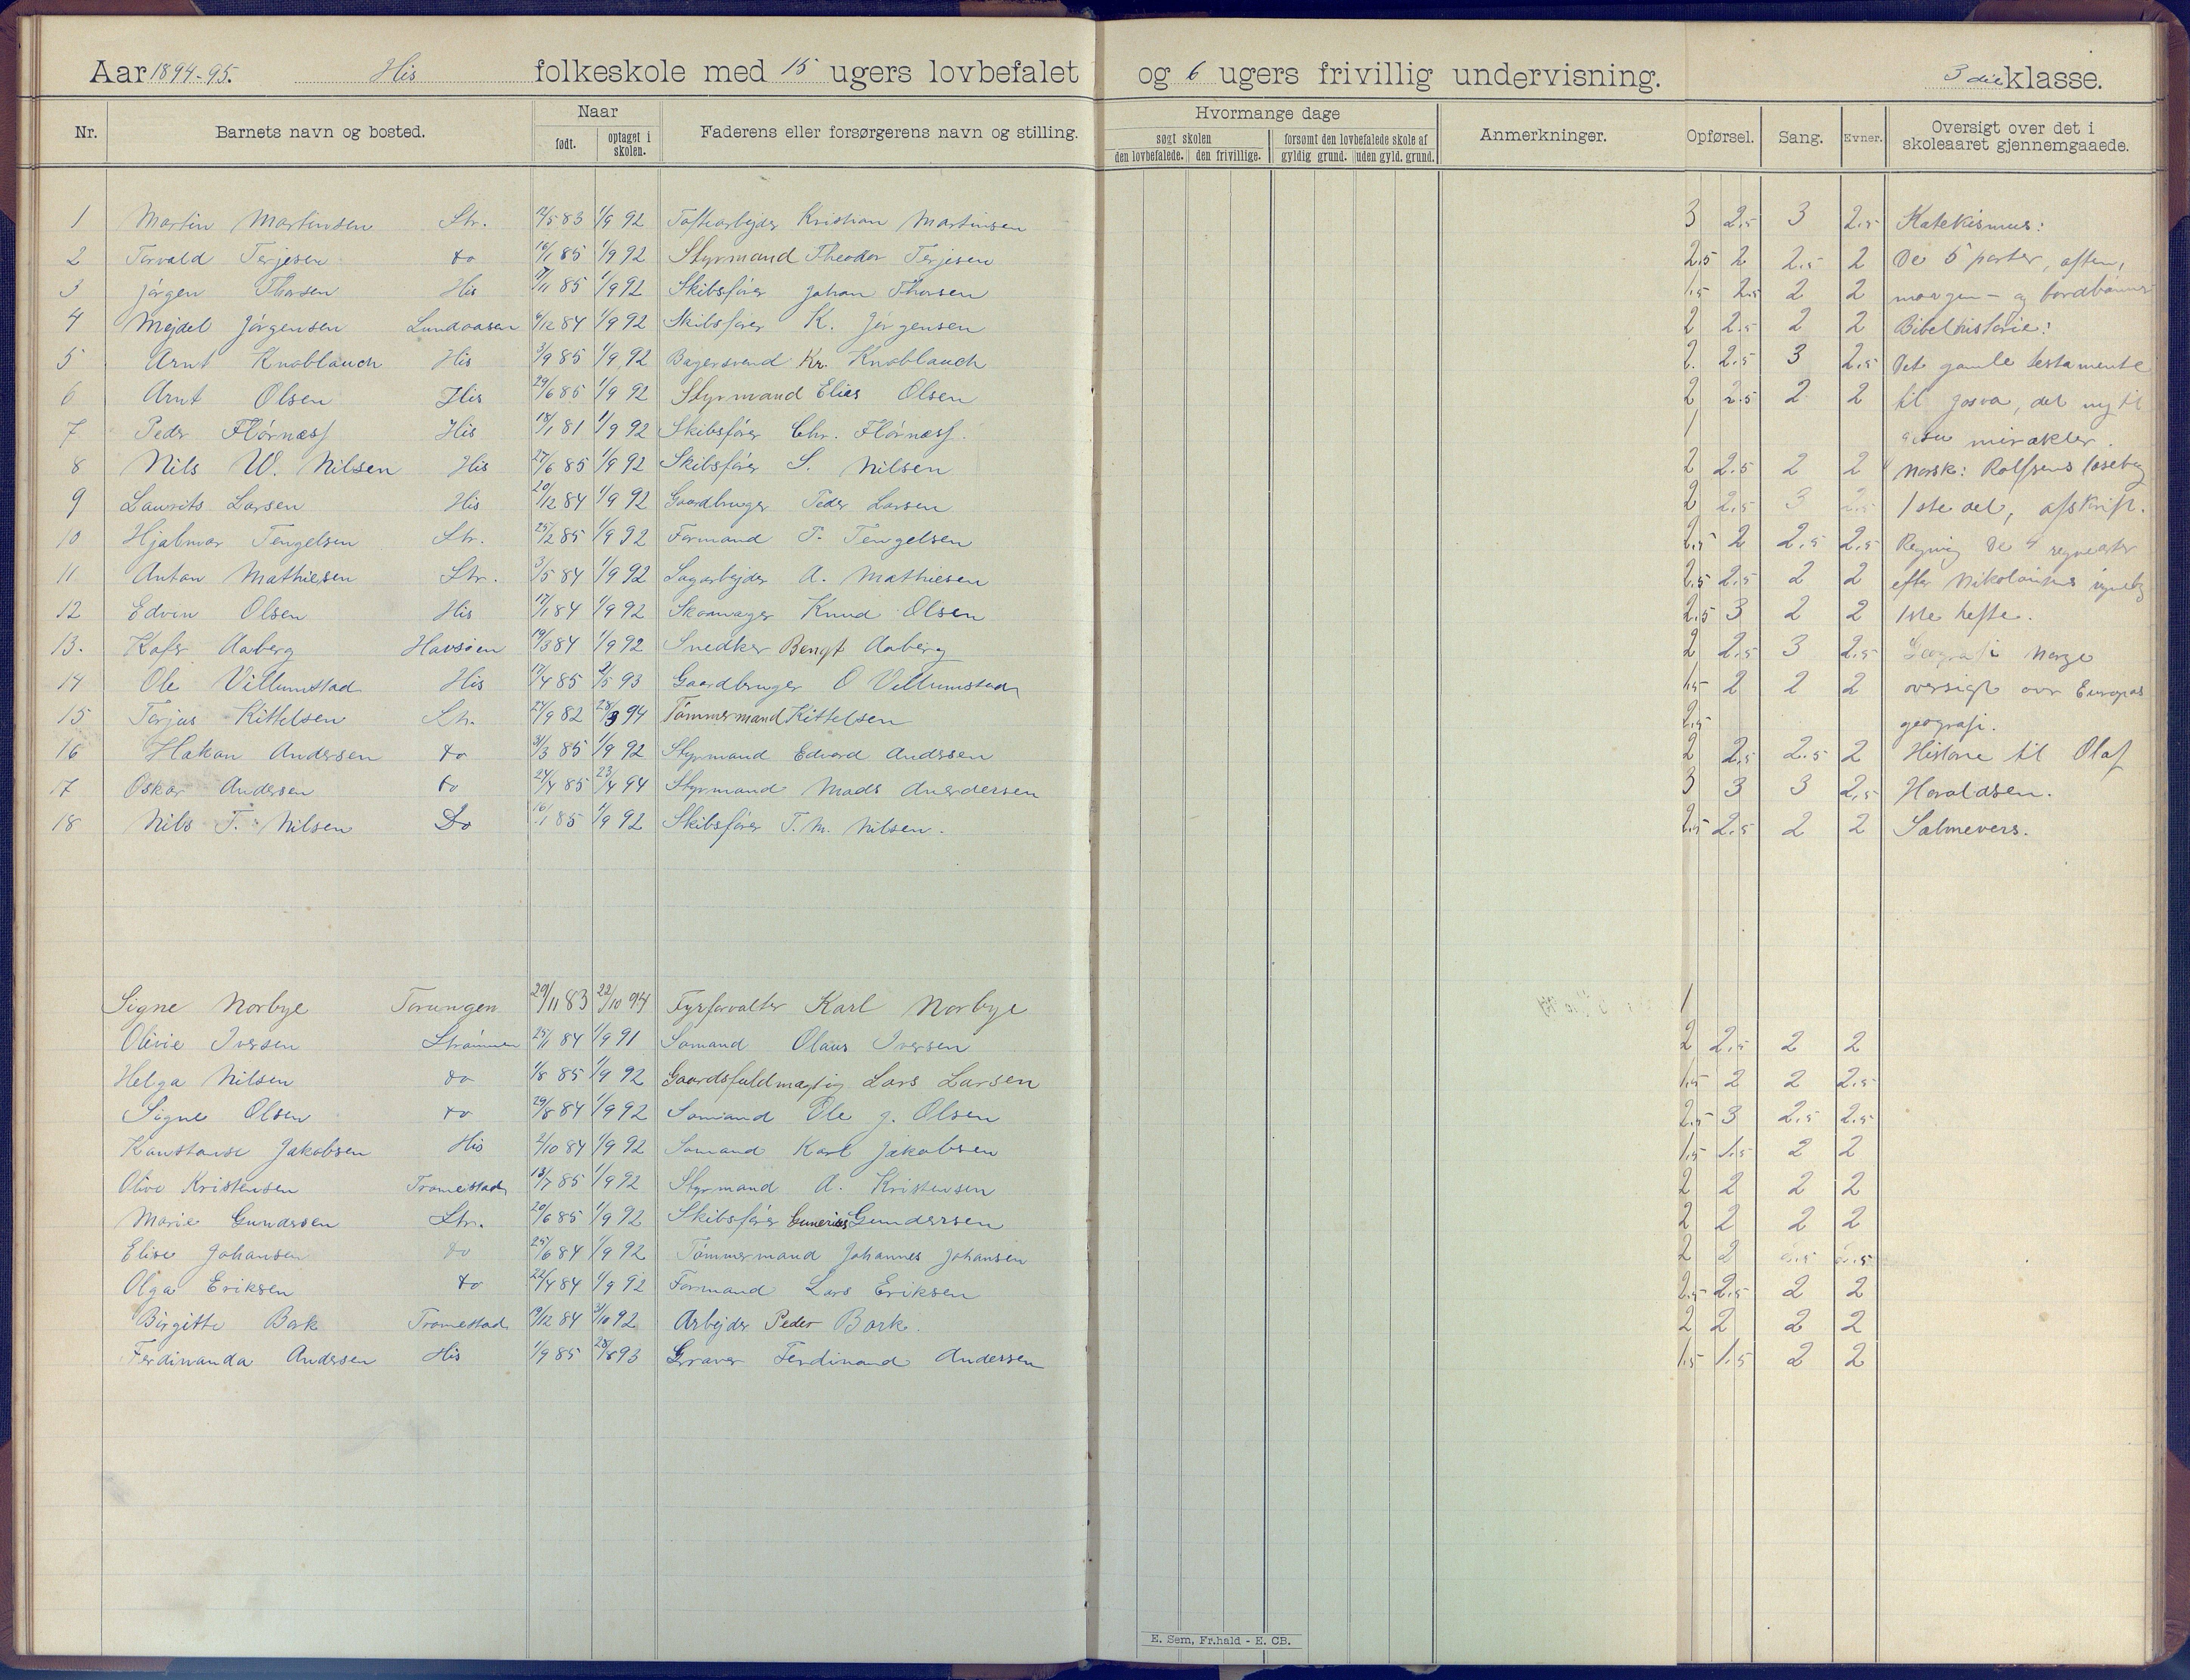 Aar 1894-95. His folkeskole med 15 ugers lovbefalet og 6 ugers frivillig undervisning. 3 die klasse.
Nr. Barnets navn og bosted. Naar Faderens eller forsørgerens navn og stilling. Hvormange dage Anmerkninger. Opførsel. Sang. Evner. Oversigt over det i skoleaaret gjennemgaaede.
født. optaget i skolen. søgt skolen forsømt den lovbefalede skole af
den lovbefalede. den frivillige. gyldig grund. uden gyld. grund.
1 Martin Martinsen Str. 12/5 83 1/9 92 Kristian Martinsen 3 2,5 3 2,5 Katekismus:
2 Torvald Terjesen do 16/1 85 1/9 92 Styrmand Theodor Terjesen 2,5 2 2,5 2 De 5 parter, aften,
3 Jørgen Thorsen His 17/11 85 1/9 92 Skibsfører Johan Thorsen 1,5 2,5 2 2 morgen- og bordbønner
4 Mejdel Jørgensen Lundaasen 6/12 84 1/9 92 Skibsfører K. Jørgensen 2 2,5 2 2 Bibelhistorie:
5 Arnt Knoblauch His 3/9 85 1/9 92 Bagersvend Kr. Knoblauch 2. 2,5 3 2,5 Det gamle testamente
6 Arnt Olsen His 29/6 85 1/9 92 Styrmand Elias Olsen 2 2,5 2 2 til Josva, det ny til
7 Peder Flørnæss His 18/1 81 1/9 92 Skibsfører Chr. Flørnæss. 1 mirakler.
8 Nils W. Nilsen His 27/6 85 1/9 92 Skibsfører S. Nilsen 2 2,5 2 2 Norsk: Rolfsens læsebog
9 Laurits Larsen His 20/12 84 1/9 92 Gaardbruger Peder Larsen 2 2,5 3 2,5 1ste del, afskrift.
10 Hjalmar Tengelsen Str. 25/2 85 1/9 92 Formand T. Tengelsen 2,5 2 2,5 2,5 Regning De 4 regnearter
11 Anton Mathiesen Str. 3/5 84 1/9 92 Sagarbejder A. Mathiesen 2,5 2,5 2 2 efter Nikolaisens
12 Edvin Olsen His 17/1 84 1/9 92 Skomager Knud Olsen 2,5 3 2 2 1ste hefte.
13. Aaberg Havsøen 19/3 84 1/9 92 Snedker Bengt Aaberg 2 2,5 3 2,5 Geografi Norge
14 Ole Villumstad His 17/4 85 2/5 93 Gaardbruger O Villumstad 1,5 2 2 2 oversigt over Europas
15 Torjus Kittelsen Str. 24/9 82 28/3 94 Tømmermand Kittelsen 2,5 geografi.
16 Hakon Andersen do 31/3 85 1/9 92 Styrmand Edvard Andersen 2 2,5 2,5 2 Historie til Olaf
17 Oskar Andersen do 24/4 85 23/4 94 Styrmand Mads Anerdersen 3 3 3 2,5 Haraldsen.
18 Nils T. Nilsen Do 16/1 85 1/9 92 Skibsfører T. M. Nilsen. 2,5 2,5 2 2 Salmevers.
Signe Norbye Torungen 29/11 83 22/10 94 Fyrforvalter Karl Norbye 1
Olivie Iversen Strømmen 25/1 84 1/9 91 Sømand Olaus Iversen 2 2,5 2 2
Helga Nilsen do 1/8 85 1/9 92 Gaardsfuldmægtig Lars Larsen 1,5 2 2 2,5
Signe Olsen do 29/8 84 1/9 92 Sømand Ole J. Olsen 2,5 3 2,5 2,5
Konstanse Jakobsen His 2/10 84 1/9 92 Sømand Karl Jakobsen 1,5 1,5 2 2
Olive Kristensen Tromestad 13/7 85 1/9 92 Styrmand A. Kristensen 2 2 2 2
Marie Gundersen Str. 20/6 85 1/9 92 Skibsfører Gunerius Gundersen 2 2 2 2
Elise Johansen do 25/6 84 1/9 92 Tømmermand Johannes Johansen 2 2 2,5 2,5
Olga Eriksen do 22/4 84 1/9 92 Formand Lars Eriksen 2,5 2,5 2 2
Birgitte Bark Tromestad 19/12 84 3/10 92 Arbejder Peder Bark. 2 2 2 2
Ferdinanda Andersen His 1/9 85 28/8 93 Graver Ferdinand Andersen 1,5 1,5 2 2
E. Sem, Fr.hald - E. CB.